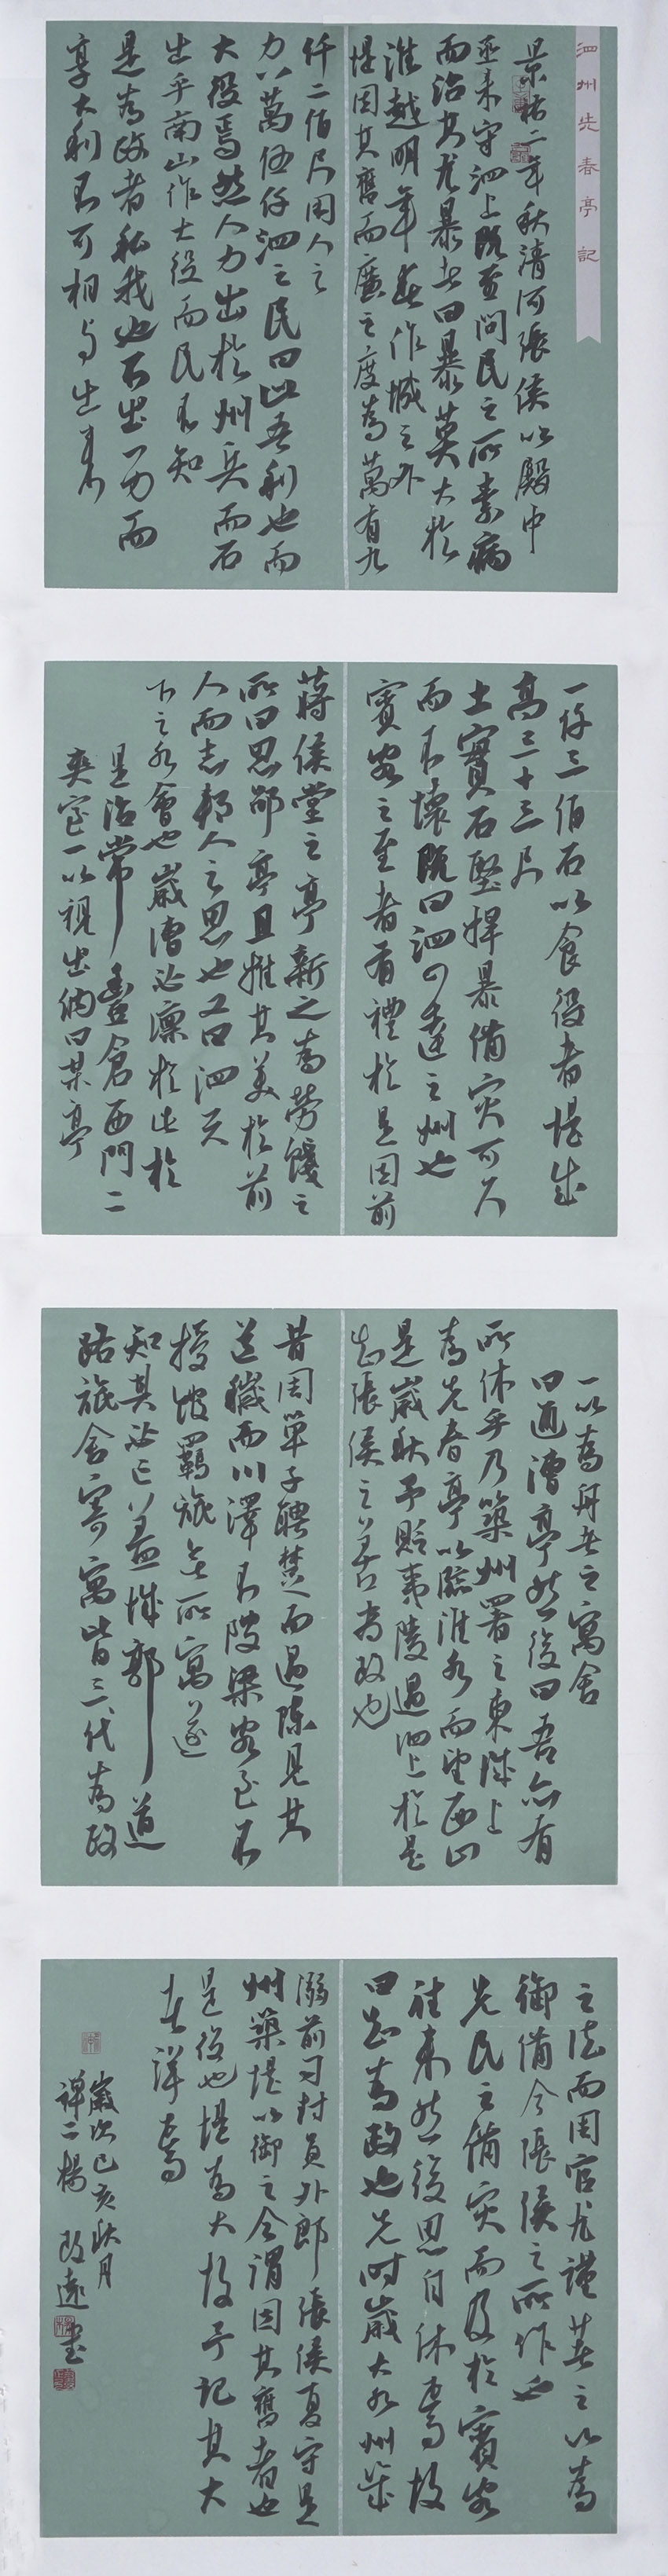 泗州先春亭記
景祐二年秋清河張侯以殿中
丞來守泗上既至問民之所素病
而治其尤暴者曰暴莫大於
淮越明年春作城之外
堤因其舊而廣之度為萬有九
仟二佰尺用人之
力八萬伍仟泗之民曰此吾利也而
大役焉然人力出於州兵而石
出乎南山作大役而民不知
是為政者私我也不出一力而
享大利不可相與出米
一仟三佰石以食役者堤成
高三十三尺
土實石堅捍暴備災可久
而不壞既曰泗四達之州也
賓客之至者有禮於是因前
蔣侯堂之亭新之為勞餞之
所曰思邵亭且推其美於前
人而志邦人之思也又曰泗天
下之水會也歲漕必廩於此於
是治常豐倉西門二
夾室一以視出納曰某亭
一以為舟者之寓舍
曰通漕亭然後曰吾亦有
所休乎乃築州署之東城上
為先春亭以臨淮水而望西山
是歲秋予貶夷陵過泗上於是
知張侯之善為政也
昔周單子聘楚而過陳見其
道穢而川澤不陂梁客至不
授館羈旅無所寓遂
知其必亡蓋城郭道
路旅舍寄寓皆三代為政
之法而周官尤謹著之以為
御備今張侯之所作也
先民之備災而及於賓客
往來然後思自休焉故
曰知為政也先時歲大水州幾
溺前司封員外郎張侯夏守是
州築堤以御之今謂因其舊者也
是役也堤為大故予記其大
者詳焉
歲次己亥秋月
楊 遠書